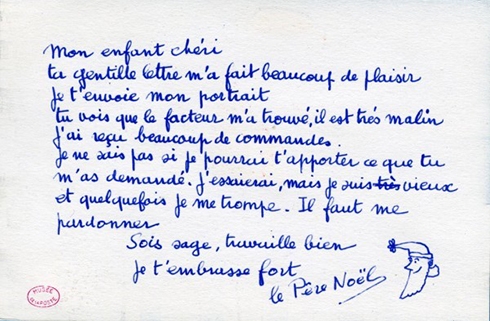 Mon enfant chéri
ta gentille lettre m'a fait beaucoup de plaisir
Je t'envoie mon portrait
tu vois que le facteur m'a trouvé, il est trés malin
J'ai reçu beaucoup de commandes.
Je ne sais pas si je pourrai t'apporter ce que tu
m'as demandé. J'essaierai, mais je suis très vieux
et quelquefois je me trompe. Il faut me
pardonner
Sois sage, travaille bien
Je t'embrasse fort
le Père Noël
MUSÉE
DE LA POSTE